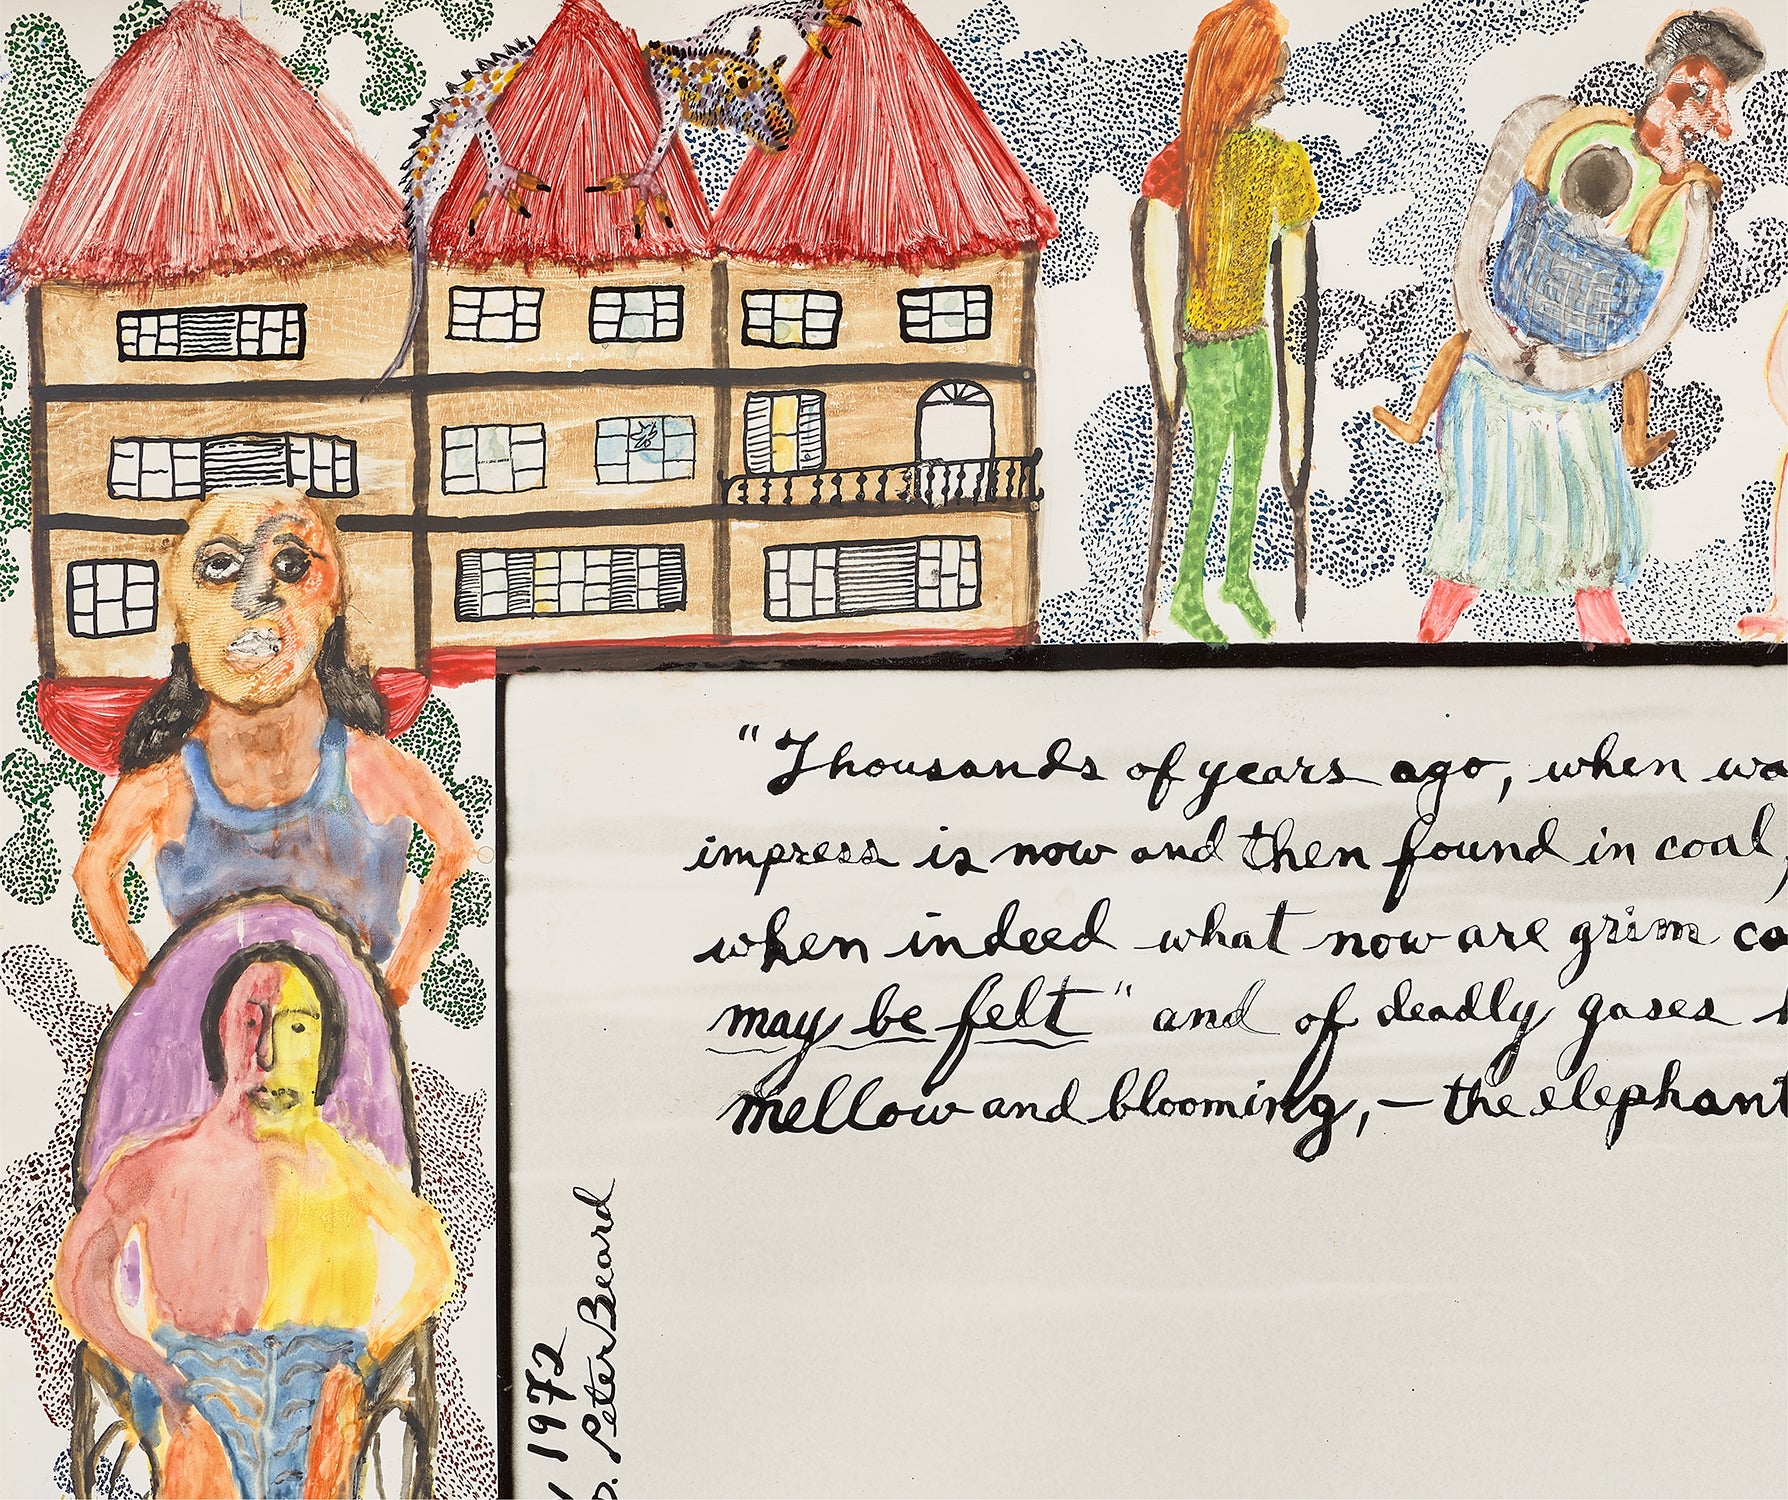 "Thousands of years ago, when wa
impress is now and then found in coal,
when indeed what now are grim co
may be felt" and of deadly gases
mellow and blooming, — the elephant
1972
Peter Beard